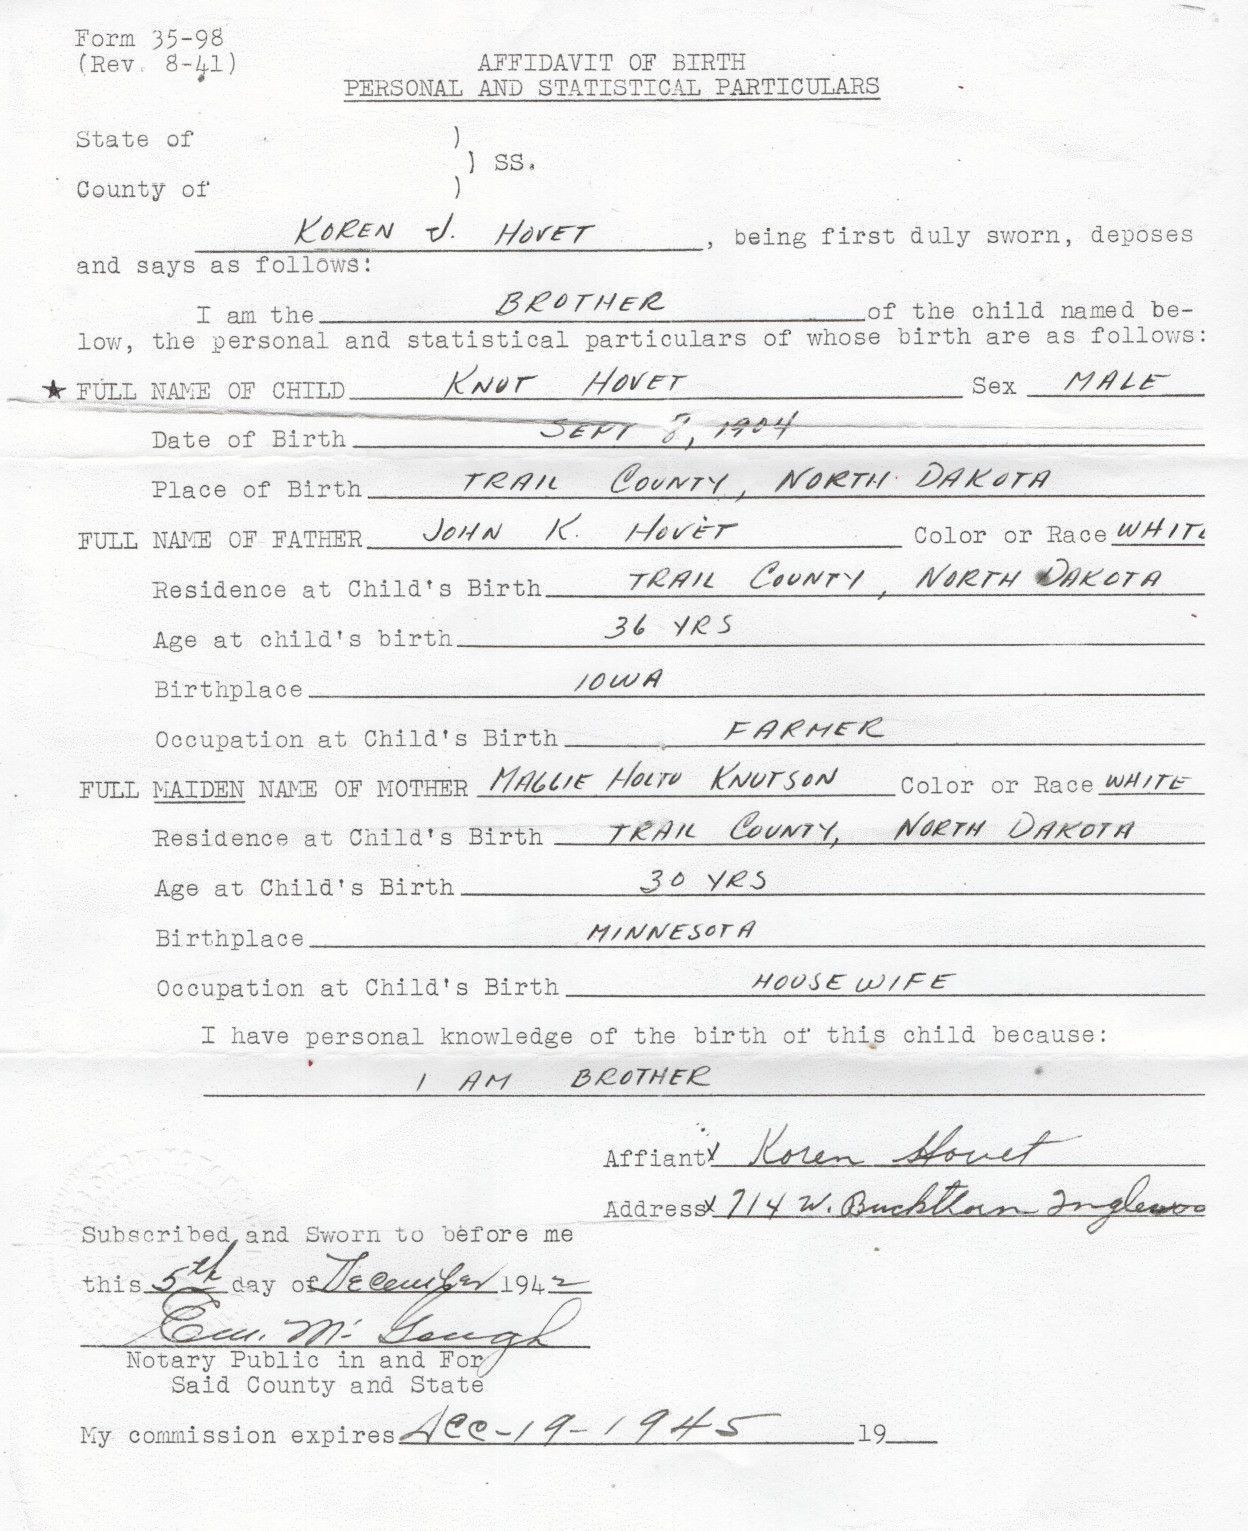 Form 35-98
(Rev. 8-41)
AFFIDAVIT OF BIRTH
PERSONAL AND STATISTICAL PARTICULARS
State of )
) SS.
County of )
KOREN J. HOVET, being first duly sworn, deposes
and says as follows:
I am the BROTHER of the child named be-
low, the personal and statistical particulars of whose birth are as follows:
★ FULL NAME OF CHILD KNUT HOVET Sex MALE
Date of Birth SEPT 8, 1904
Place of Birth TRAIL COUNTY, NORTH DAKOTA
FULL NAME OF FATHER JOHN K. HOVET Color or Race WHITE
Residence at Child's Birth TRAIL COUNTY, NORTH DAKOTA
Age at child's birth 36 YRS
Birthplace IOWA
Occupation at Child's Birth FARMER
FULL MAIDEN NAME OF MOTHER MAGGIE HOLTO KNUTSON Color or Race WHITE
Residence at Child's Birth TRAIL COUNTY, NORTH DAKOTA
Age at Child's Birth 30 YRS
Birthplace MINNESOTA
Occupation at Child's Birth HOUSEWIFE
I have personal knowledge of the birth of this child because:
I AM BROTHER
Affiant x Koren Hovet
Address x 714 W. Buckthorn Inglewoo
Subscribed and Sworn to before me
this 5th day of December 1942
McGough
Notary Public in and For
Said County and State
My commission expires Dec-19-1945 19